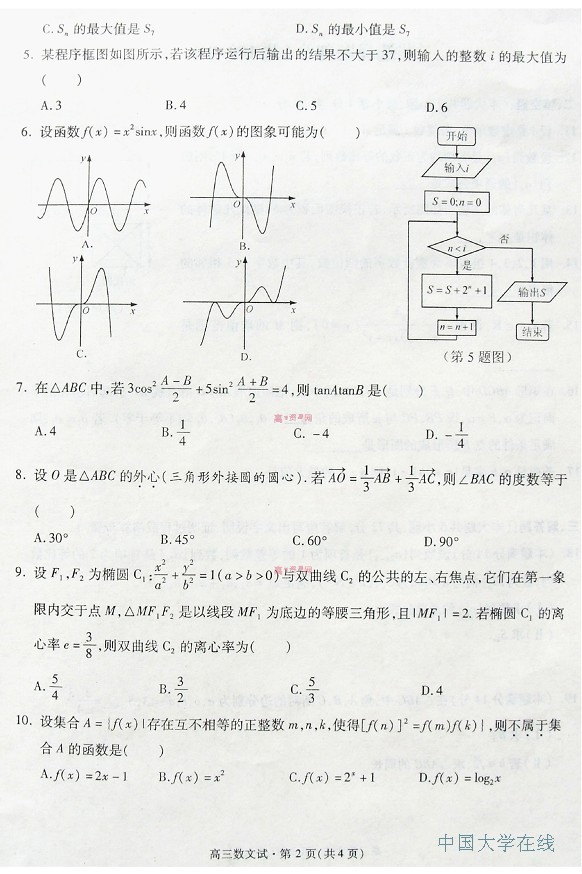 C. Sₙ 的最大值是 S₇ D. Sₙ 的最小值是 S₇
5. 某程序框图如图所示,若该程序运行后输出的结果不大于 37,则输入的整数 i 的最大值为
( )
A.3 B.4 C.5 D.6
6. 设函数 f(x) = x²sinx,则函数 f(x) 的图象可能为( )
y
O
x
A.
y
O
x
B.
y
O
x
C.
y
O
x
D.
开始
输入i
S=0;n=0
n<i
否
是
S=S+2ⁿ+1
n=n+1
输出S
结束
(第 5 题图)
7. 在△ABC 中,若 3cos² (A-B)/2 + 5sin² (A+B)/2 = 4,则 tanAtanB 是( )
A. 4 B. 1/4 C. -4 D. -1/4
8. 设 O 是△ABC 的外心(三角形外接圆的圆心). 若 \overrightarrow{AO} = 1/3 \overrightarrow{AB} + 1/3 \overrightarrow{AC},则∠BAC 的度数等于
( )
A. 30° B. 45° C. 60° D. 90°
9. 设 F₁,F₂ 为椭圆 C₁: x²/a² + y²/b² = 1(a>b>0)与双曲线 C₂ 的公共的左、右焦点,它们在第一象
限内交于点 M,△MF₁F₂ 是以线段 MF₁ 为底边的等腰三角形,且|MF₁|=2. 若椭圆 C₁ 的离
心率 e = 3/8,则双曲线 C₂ 的离心率为( )
A. 5/4 B. 3/2 C. 5/3 D. 4
10. 设集合 A = {f(x)|存在互不相等的正整数 m,n,k,使得[f(n)]² = f(m)f(k)},则不属于集
合 A 的函数是( )
A. f(x) = 2x-1 B. f(x) = x² C. f(x) = 2ˣ+1 D. f(x) = log₂x
中国大学在线
高三数文试·第 2 页(共 4 页)